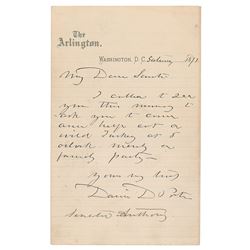 The
Arlington.
WASHINGTON, D.C. 187
My Dear
I called to see
you this morning to
ask you to come
and help eat a
wild Turkey at 5
oclock merely a
family party—
yours very truly
David D Porter
Senator Anthony